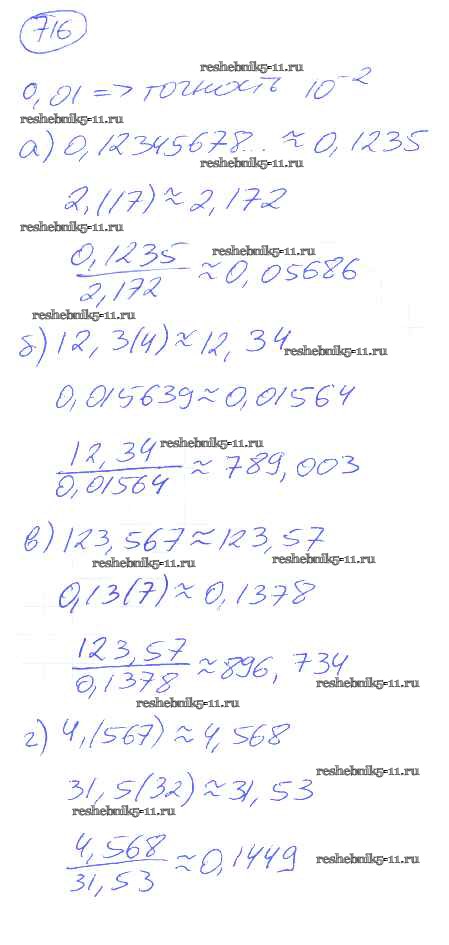 716
reshebnik5-11.ru
0,01 => точность 10^-2
reshebnik5-11.ru
а) 0,12345678... ≈ 0,1235
reshebnik5-11.ru
2,(17) ≈ 2,172
reshebnik5-11.ru
reshebnik5-11.ru
0,1235/2,172 ≈ 0,05686
reshebnik5-11.ru
б) 12,3(4) ≈ 12,34
reshebnik5-11.ru
0,015639 ≈ 0,01564
reshebnik5-11.ru
12,34/0,01564 ≈ 789,003
в) 123,567 ≈ 123,57
reshebnik5-11.ru
reshebnik5-11.ru
0,13(7) ≈ 0,1378
123,57/0,1378 ≈ 896,734
reshebnik5-11.ru
reshebnik5-11.ru
г) 4,(567) ≈ 4,568
reshebnik5-11.ru
31,5(32) ≈ 31,53
reshebnik5-11.ru
4,568/31,53 ≈ 0,1449
reshebnik5-11.ru